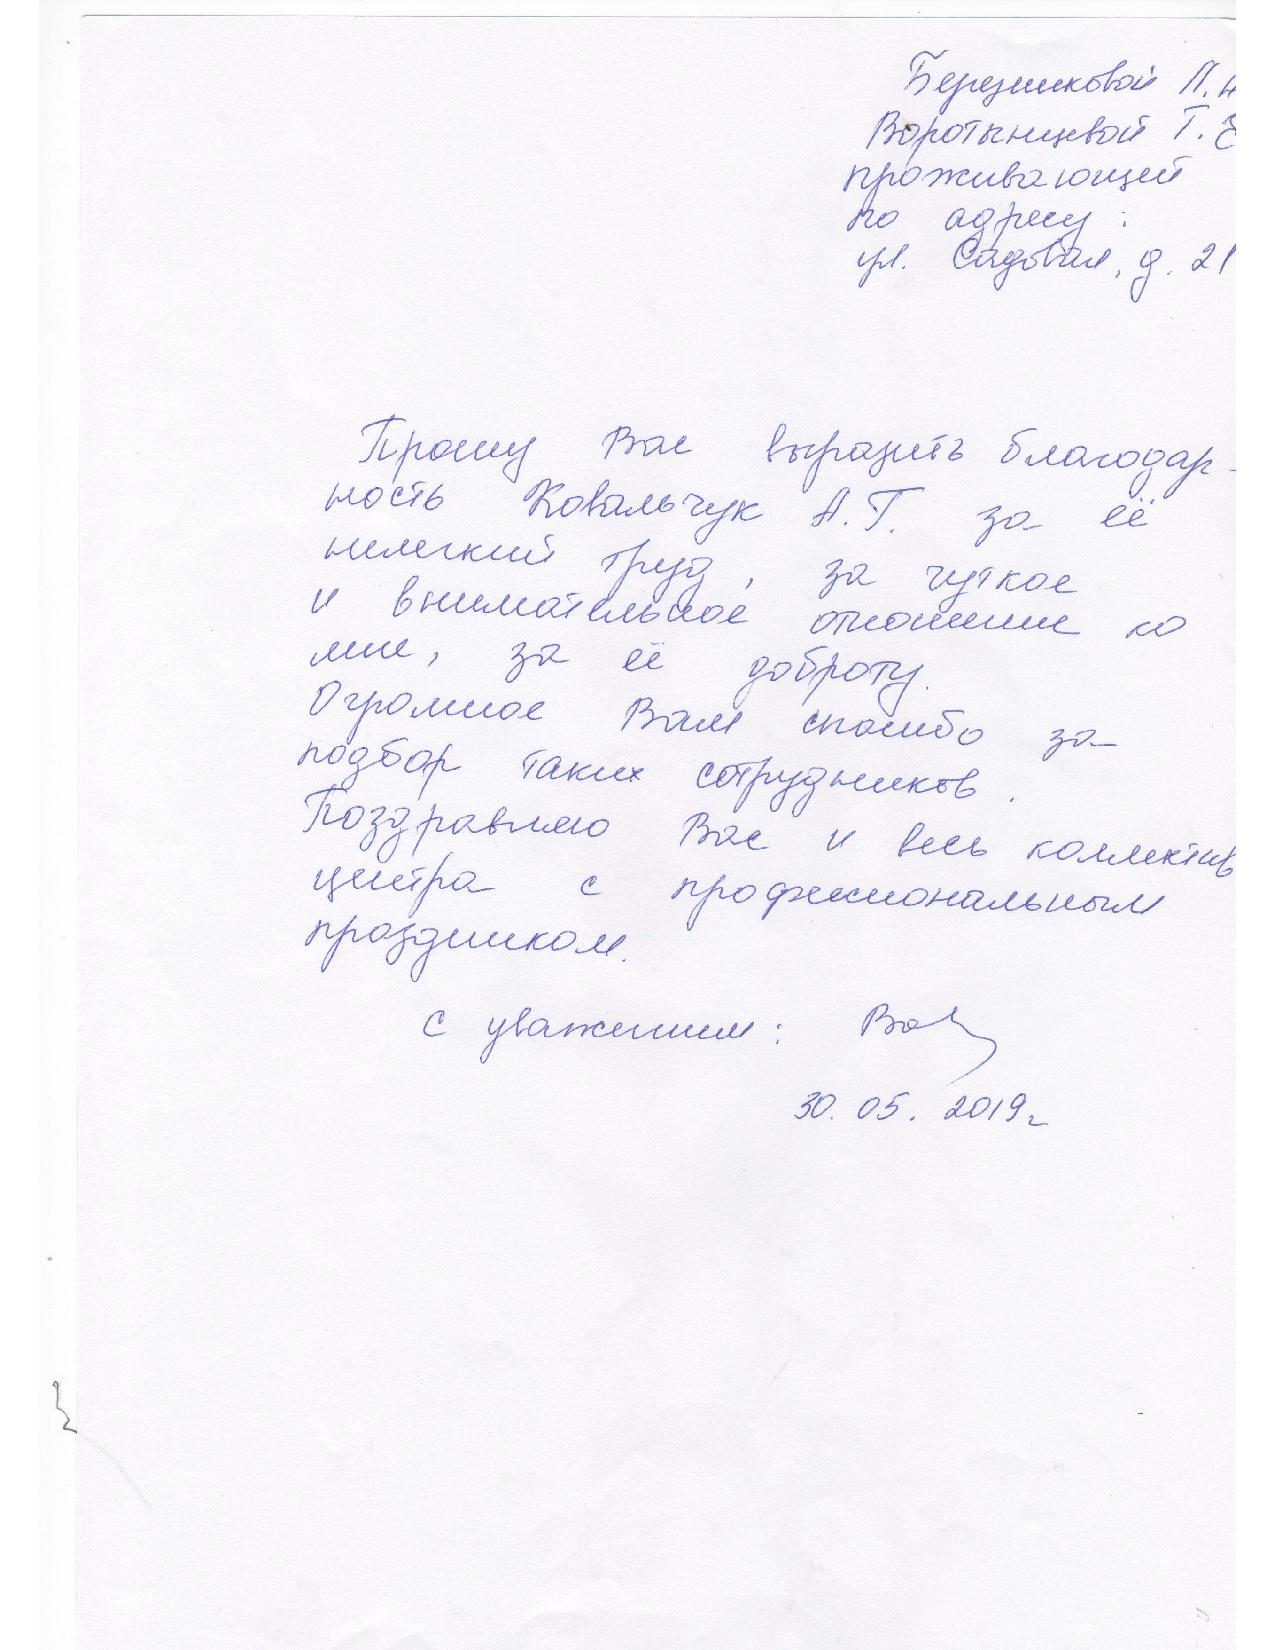 Березиковой Л. Н
Воротынцевой Т.
проживающей
по адресу:
ул. Садовая, д. 21
Прошу Вас выразить благодар-
ность Ковальчук А.Г. за её
нелегкий труд, за чуткое
и внимательное отношение ко
мне, за её доброту.
Огромное Вам спасибо за
подбор таких сотрудников.
Поздравляю Вас и весь коллектив
центра с профессиональным
праздником.
С уважением:
30.05.2019г